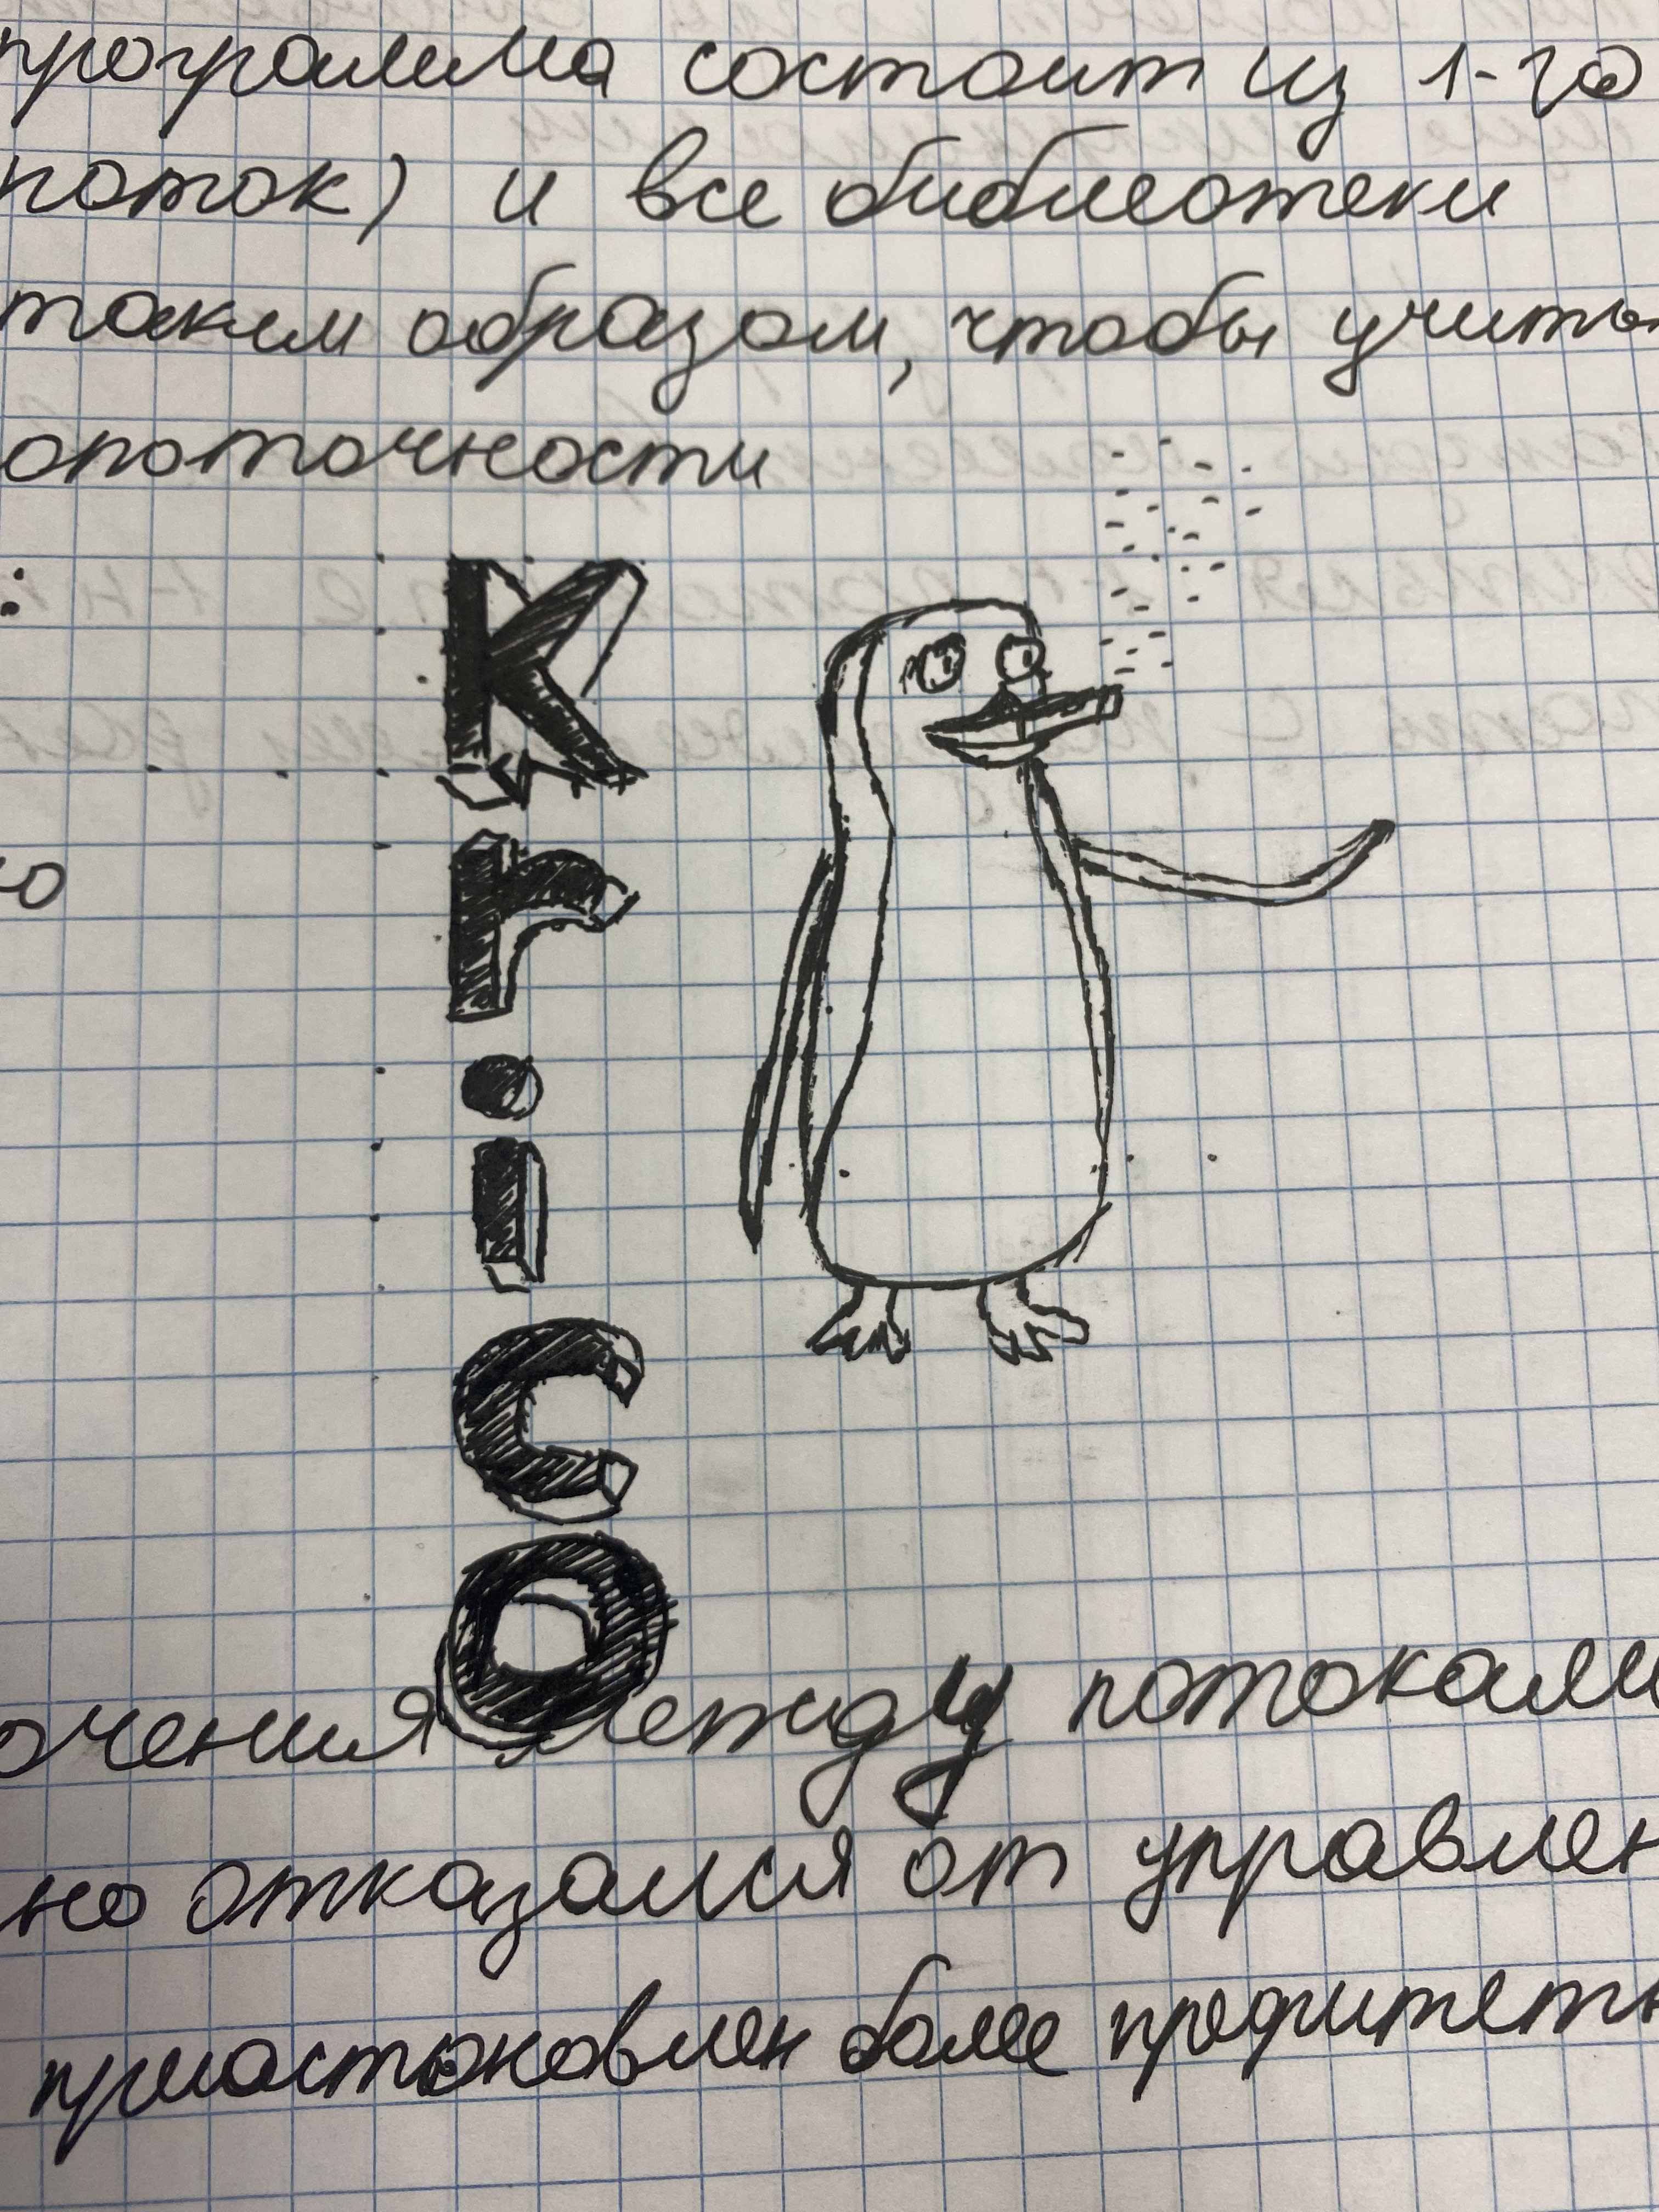 программа состоит из 1-го
поток) и все библиотеки
таким образом, чтобы учиты
опоточности
:
Krico
ю
очения между потоками
но отказался от управлен
приостановлен более приоритетн